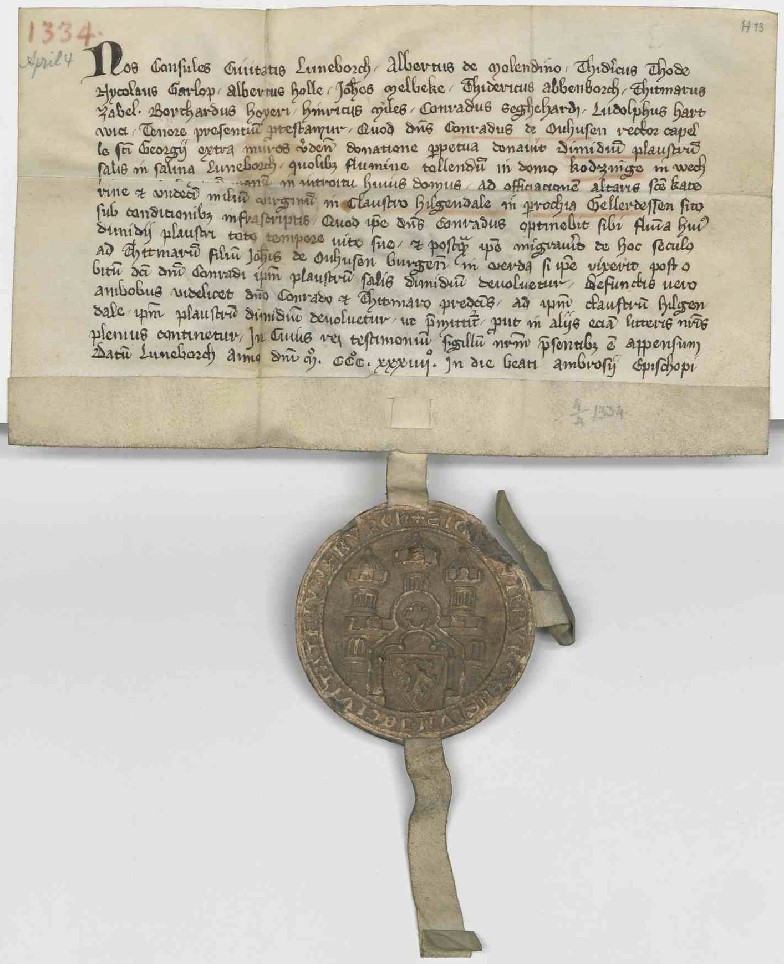 1334.
April 4
H 13
Nos Consules Civitatis Luneborch. Albertus de Molendino. Thidericus Thode
Nycolaus Garlop. Albertus Holle. Johes Melbeke. Thidericus Abbenborch. Thitmarus
Zabel. Borchardus Hoyeri. Hinricus Miles. Conradus Seghehardi. Ludolphus Hart
wici. Tenore presentiu protestamur. Quod dns Conradus de Ouhusen rector capel
le sci Georgii extra muros donatione ppetua donavit dimidiu plaustru
salis in salina Luneborch. quolibz flumine tollendu in domo kodzinge in wech
in introitu huius domus. ad officiatione altaris sce kate
rine & undeci miliu virginu in Claustro Hilgendale in prochia Gellerdessen sito
sub conditionibz infrascriptis. Quod ipe dns Conradus optinebit sibi flu(m)i(n)a hui9
dimidii plaustri toto tempore vite sue. & postq ipe migravit de hoc seculo
ad Thitmaru filiu Johis de Ouhusen burgen in verda si ipe vixerit post o
bitu dci dni Conradi ipm plaustru salis dimidiu devolvetur. Defunctis vero
ambobus videlicet dno Conrado & Thitmaro predcis. ad ipm claustru hilgen
dale. ipm plaustru dimidiu devolvetur. ut pmittit. put in aliis ecia litteris nris
plenius continetur. In Cuius rei testimoniu sigillu nrm psentibz e appensum
Datu Luneborch anno dni M. CCC. xxxiiii. In die beati ambrosii Episcopi
4/4 1334